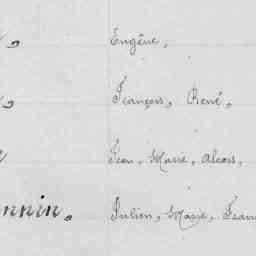 Eugène,
François, René,
Jean, Marie, Alexis,
nnin. Julien, Marie, Jean